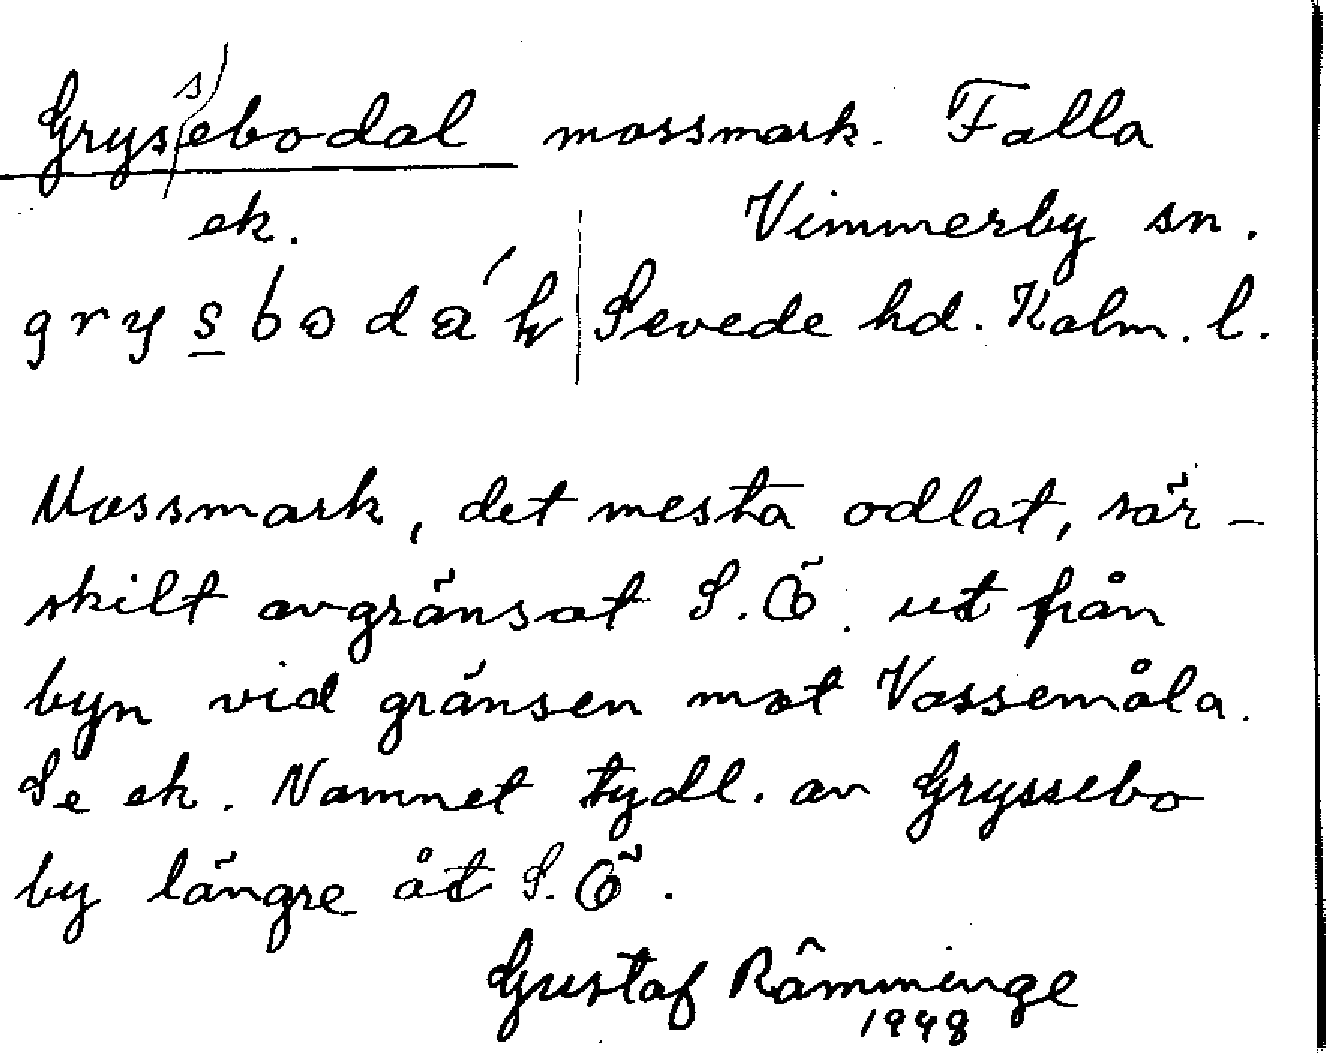 Gryssebodal mossmark. Falla
ek. Vimmerby sn.
Sevede hd. Kalm. l.
Mossmark, det mesta odlat, sär-
skilt avgränsat S.Ö. ut från
byn vid gränsen mot Vassemåla.
Se ek. Namnet tydl. av Gryssebo
by längre åt S.Ö.
Gustaf Rämminge
1948